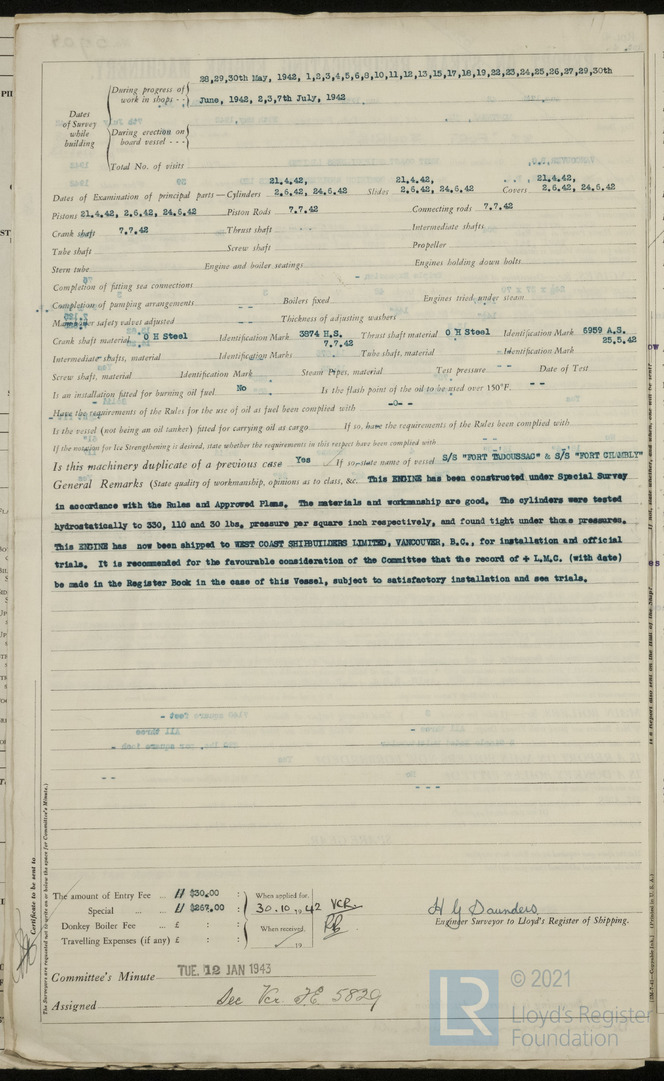 28,29,30th May, 1942, 1,2,3,4,5,6,8,10,11,12,13,15,17,18,19,22,23,24,25,26,27,29,30th
During progress of work in shops - - June, 1942, 2,3,7th July, 1942
Dates of Survey while building
During erection on board vessel - - -
Total No. of visits
21.4.42, 21.4.42, 21.4.42,
Dates of Examination of principal parts—Cylinders 2.6.42, 24.6.42 Slides 2.6.42, 24.6.42 Covers 2.6.42, 24.6.42
Pistons 21.4.42, 2.6.42, 24.6.42 Piston Rods 7.7.42 Connecting rods 7.7.42
Crank shaft 7.7.42 Thrust shaft Intermediate shafts
Tube shaft Screw shaft Propeller
Stern tube Engine and boiler seatings Engines holding down bolts
Completion of fitting sea connections
Completion of pumping arrangements Boilers fixed Engines tried under steam
Main boiler safety valves adjusted Thickness of adjusting washers
Crank shaft material O H Steel Identification Mark 3874 H.S. 7.7.42 Thrust shaft material O H Steel Identification Mark 6959 A.S. 25.5.42
Intermediate shafts, material Identification Marks Tube shaft, material Identification Mark
Screw shaft, material Identification Mark Steam Pipes, material Test pressure Date of Test
Is an installation fitted for burning oil fuel No Is the flash point of the oil to be used over 150°F. - -
Have the requirements of the Rules for the use of oil as fuel been complied with -o-
Is the vessel (not being an oil tanker) fitted for carrying oil as cargo If so, have the requirements of the Rules been complied with
If the notation for Ice Strengthening is desired, state whether the requirements in this respect have been complied with - -
Is this machinery duplicate of a previous case Yes If so, state name of vessel S/S "FORT TADOUSSAC" & S/S "FORT CHAMBLY"
General Remarks (State quality of workmanship, opinions as to class, &c. This ENGINE has been constructed under Special Survey
in accordance with the Rules and Approved Plans. The materials and workmanship are good. The cylinders were tested
hydrostatically to 330, 110 and 30 lbs. pressure per square inch respectively, and found tight under those pressures.
This ENGINE has now been shipped to WEST COAST SHIPBUILDERS LIMITED, VANCOUVER, B.C., for installation and official
trials. It is recommended for the favourable consideration of the Committee that the record of + L.M.C. (with date)
be made in the Register Book in the case of this Vessel, subject to satisfactory installation and sea trials.
The amount of Entry Fee ... $30.00 : When applied for,
Special ... ... $267.00 : 30.10.1942 VCR.
Donkey Boiler Fee ... £ : : When received,
Travelling Expenses (if any) £ : : 19
H G Saunders
Engineer Surveyor to Lloyd's Register of Shipping.
Committee's Minute TUE. 12 JAN 1943
Assigned See Vcr F.E. 5829
Certificate to be sent to
The Surveyors are requested not to write on or below the space for Committee's Minute.)
© 2021
LR
Lloyd's Register
Foundation